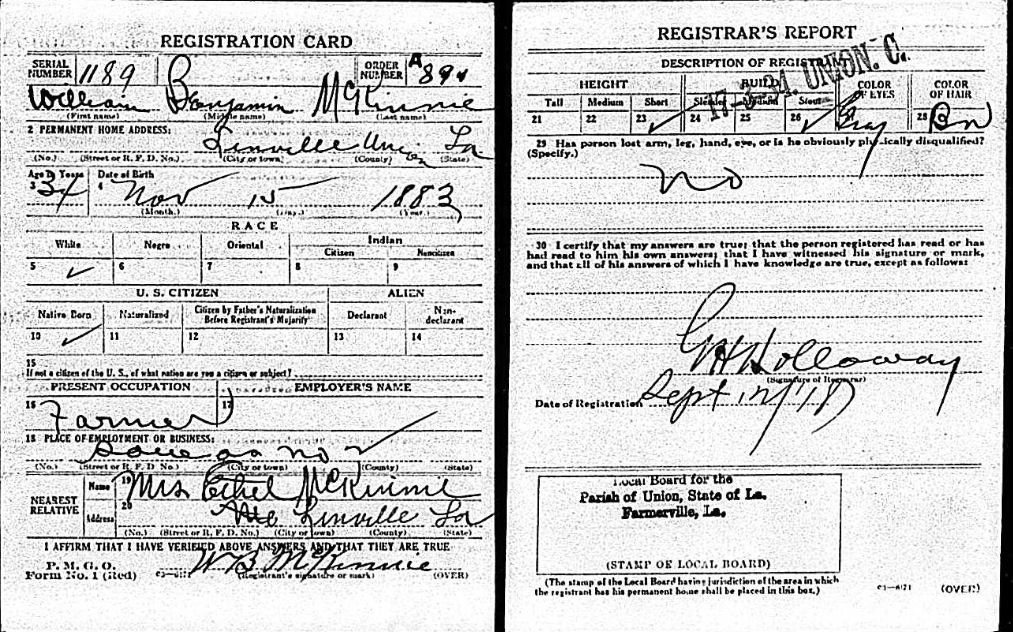 REGISTRATION CARD
SERIAL NUMBER 1189
ORDER NUMBER A 894
William Benjamin McKinnie
(First name) (Middle name) (Last name)
2 PERMANENT HOME ADDRESS:
Linville Union La
(No.) (Street or R. F. D. No.) (City or town) (County) (State)
Age in Years Date of Birth
3 34 4 Nov 15 1883
(Month.) (Day.) (Year.)
RACE
White Negro Oriental Indian
Citizen Noncitizen
5 ✓ 6 7 8 9
U. S. CITIZEN ALIEN
Native Born Naturalized Citizen by Father's Naturalization Before Registrant's Majority Declarant Non-declarant
10 ✓ 11 12 13 14
15
If not a citizen of the U. S., of what nation are you a citizen or subject?
PRESENT OCCUPATION EMPLOYER'S NAME
16 Farmer 17
18 PLACE OF EMPLOYMENT OR BUSINESS:
Same as no 2
(No.) (Street or R. F. D No.) (City or town) (County) (State)
NEAREST RELATIVE
Name 19 Mrs Ethel McKinnie
Address 20 Linville La
(No.) (Street or R. F. D. No.) (City or town) (County) (State)
I AFFIRM THAT I HAVE VERIFIED ABOVE ANSWERS AND THAT THEY ARE TRUE
W B McKinnie
P. M. G. O.
Form No. 1 (Red) (Registrant's signature or mark) (OVER)
REGISTRAR'S REPORT
17-3-M. UNION. C.
DESCRIPTION OF REGISTRANT
HEIGHT BUILD COLOR OF EYES COLOR OF HAIR
Tall Medium Short Slender Medium Stout
21 22 23 ✓ 24 25 26 ✓ Gray 28 Bn
29 Has person lost arm, leg, hand, eye, or is he obviously physically disqualified?
(Specify.)
no
30 I certify that my answers are true; that the person registered has read or has
had read to him his own answers; that I have witnessed his signature or mark,
and that all of his answers of which I have knowledge are true, except as follows:
Holloway
(Signature of Registrar)
Date of Registration Sept 12/18
Local Board for the
Parish of Union, State of La.
Farmerville, La.
(STAMP OF LOCAL BOARD)
(The stamp of the Local Board having jurisdiction of the area in which
the registrant has his permanent home shall be placed in this box.)
03-6171 (OVER)